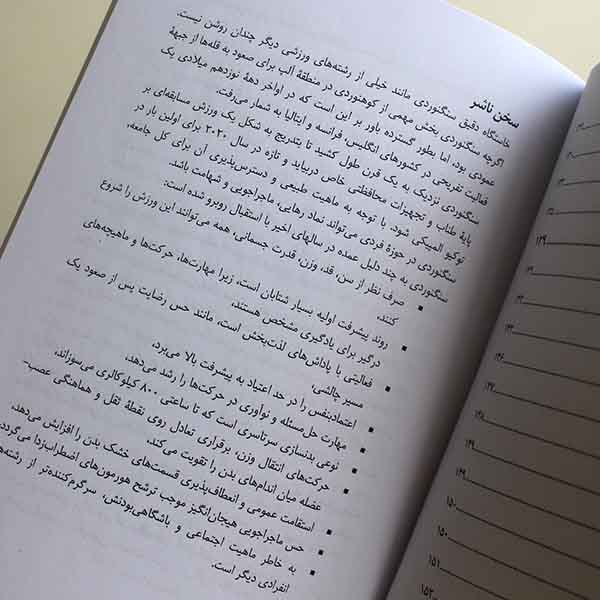 سخن ناشر
خاستگاه دقیق سنگنوردی مانند خیلی از رشته‌های ورزشی دیگر چندان روشن نیست.
اگرچه سنگنوردی بخش مهمی از کوهنوردی در منطقهٔ آلپ برای صعود به قله‌ها از جبههٔ
عمودی بود، اما بطور گسترده باور بر این است که در اواخر دههٔ نوزدهم میلادی یک
فعالیت تفریحی در کشورهای انگلیس، فرانسه و ایتالیا به شمار می‌رفت.
سنگنوردی نزدیک به یک قرن طول کشید تا بتدریج به شکل یک ورزش مسابقه‌ای بر
پایهٔ طناب و تجهیزات محافظتی خاص دربیاید و تازه در سال ۲۰۲۰ برای اولین بار در
توکیو المپیکی شود. با توجه به ماهیت طبیعی و دسترس‌پذیری آن برای کل جامعه،
سنگنوردی در حوزهٔ فردی می‌تواند نماد رهایی، ماجراجویی و شهامت باشد.
سنگنوردی به چند دلیل عمده در سالهای اخیر با استقبال روبرو شده است:
▪ صرف نظر از سن، قد، وزن، قدرت جسمانی، همه می‌توانند این ورزش را شروع
کنند.
▪ روند پیشرفت اولیه بسیار شتابان است، زیرا مهارت‌ها، حرکت‌ها و ماهیچه‌های
درگیر برای یادگیری مشخص هستند.
▪ فعالیتی با پاداش‌های لذت‌بخش است، مانند حس رضایت پس از صعود یک
مسیر چالشی.
▪ اعتمادبنفس را در حد اعتیاد به پیشرفت بالا می‌برد.
▪ مهارت حل‌مسئله و نوآوری در حرکت‌ها را رشد می‌دهد.
▪ نوعی بدنسازی سرتاسری است که تا ساعتی ۸۰۰ کیلوکالری می‌سوزاند.
▪ حرکت‌های انتقال وزن، برقراری تعادل روی نقطهٔ ثقل و هماهنگی عصب–
عضله میان اندام‌های بدن را تقویت می‌کند.
▪ استقامت عمومی و انعطاف‌پذیری قسمت‌های خشک بدن را افزایش می‌دهد.
▪ حس ماجراجویی هیجان‌انگیز موجب ترشح هورمون‌های اضطراب‌زدا می‌گردد
▪ به خاطر ماهیت اجتماعی و باشگاهی‌بودنش، سرگرم‌کننده‌تر از رشته‌های
انفرادی دیگر است.
۱۳۹
۱۴۶
۱۴۷
۱۴۸
۱۴۹
۱۵۰
۱۵۰
۱۵۱
۱۵۲